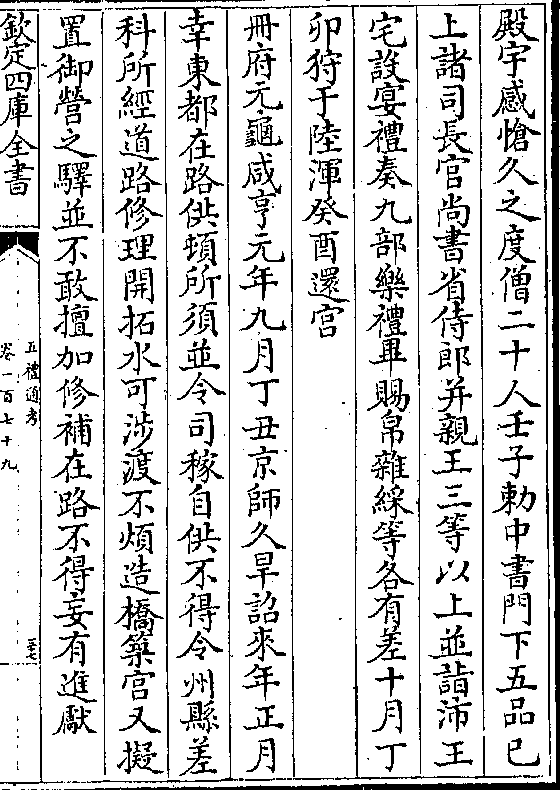 殿宇感愴久之度僧二十人壬子勅中書門下五品已
上諸司長官尚書省侍郎并親王三等以上並詣沛王
宅設宴禮奏九部樂禮畢賜帛雜綵等各有差十月丁
卯狩于陸渾癸酉還宫
冊府元龜咸亨元年九月丁丑京師久旱詔來年正月
幸東都在路供頓所須並令司稼自供不得令州縣差
科所經道路修理開拓水可涉渡不煩造橋築宫又擬
置御營之驛並不敢擅加修補在路不得妄有進獻
欽定四庫全書
五禮通考
卷一百七十九
三十七